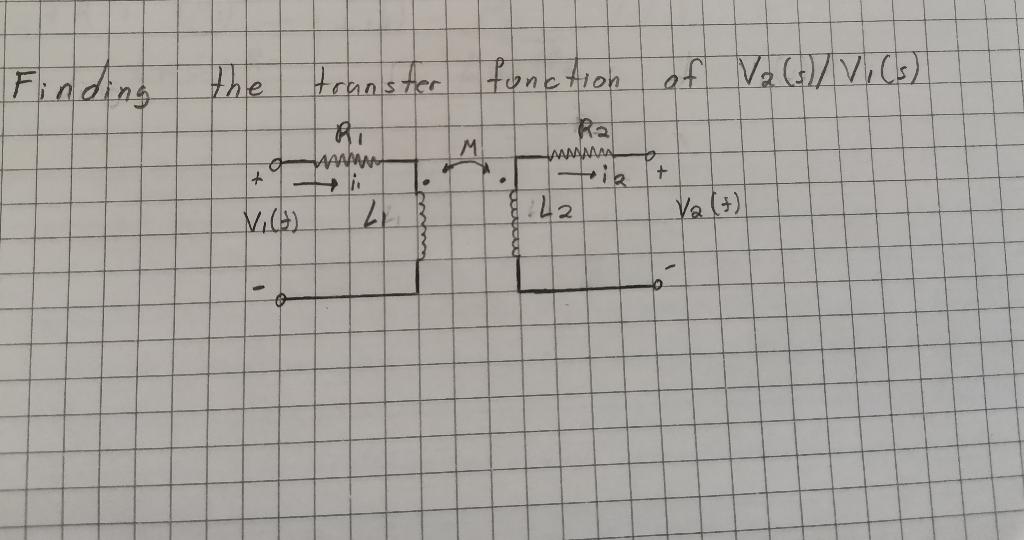 Finding the transfer function of V2(s)/V1(s)
R1 M R2
+ i1 i2 +
V1(t) L1 L2 V2(t)
- -